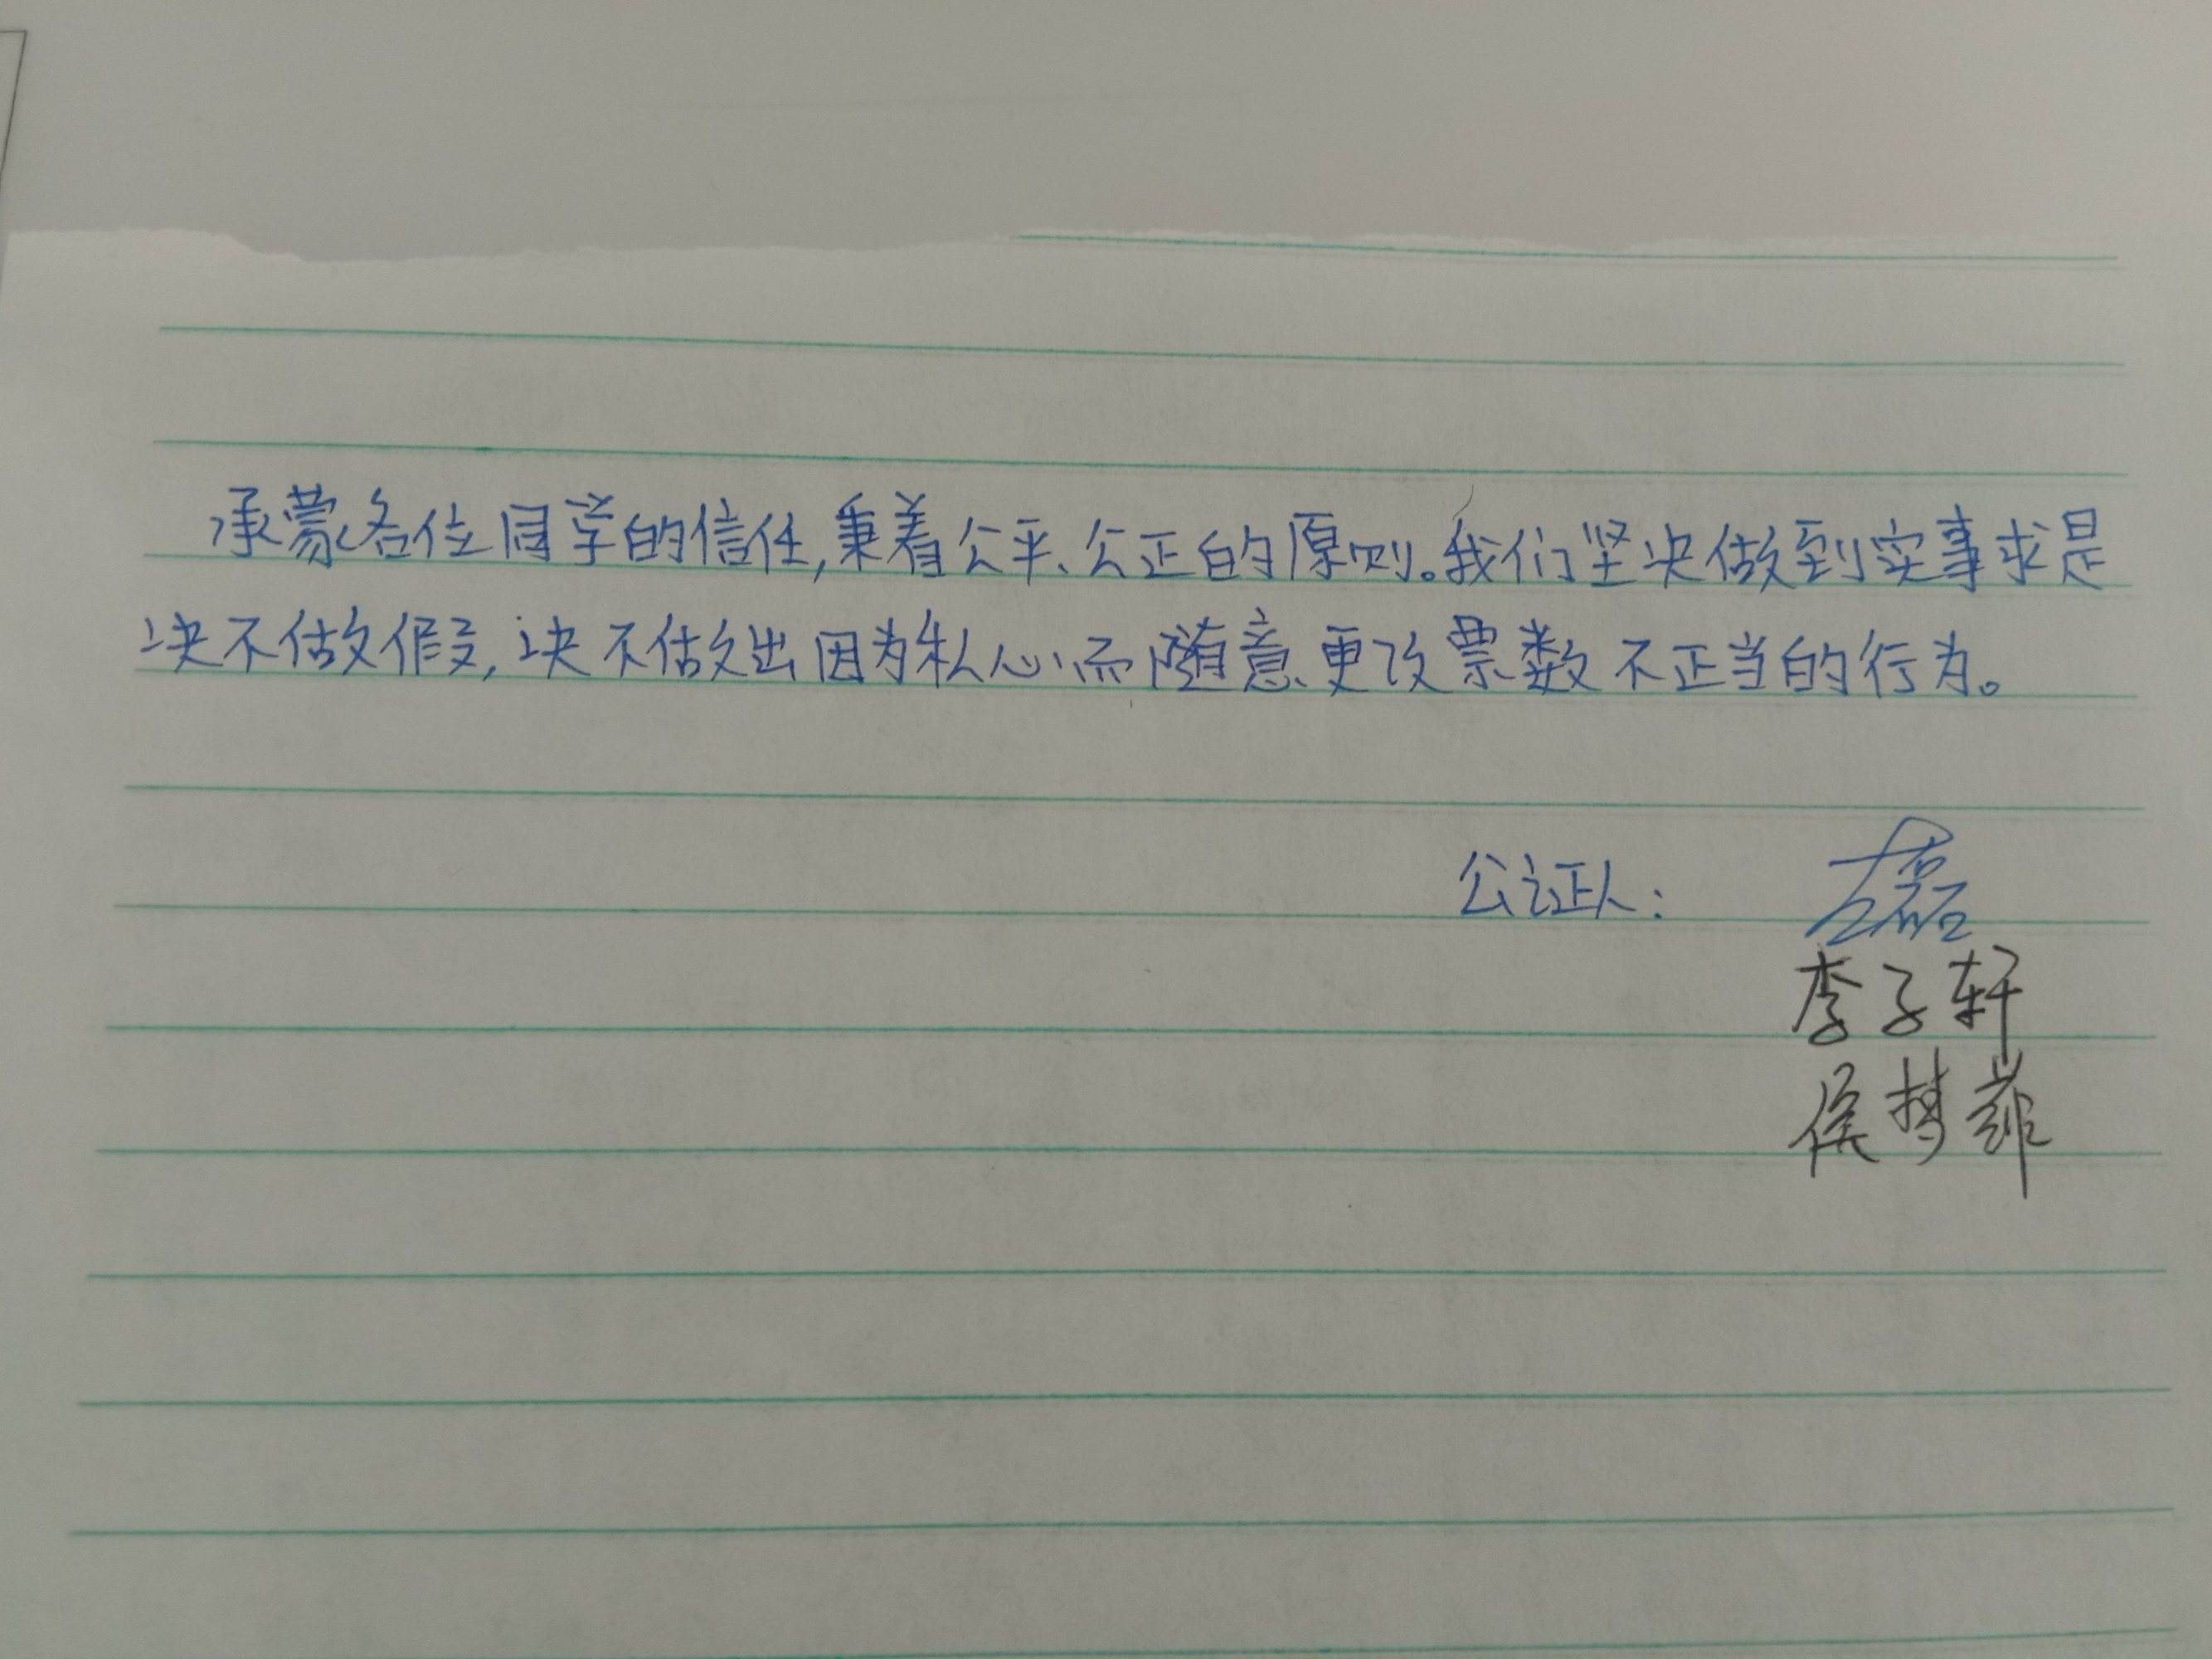 承蒙各位同学的信任,秉着公平、公正的原则。我们坚决做到实事求是
决不做假,决不做出因为私心而随意更改票数不正当的行为。
公证人:
李子轩
侯梦菲